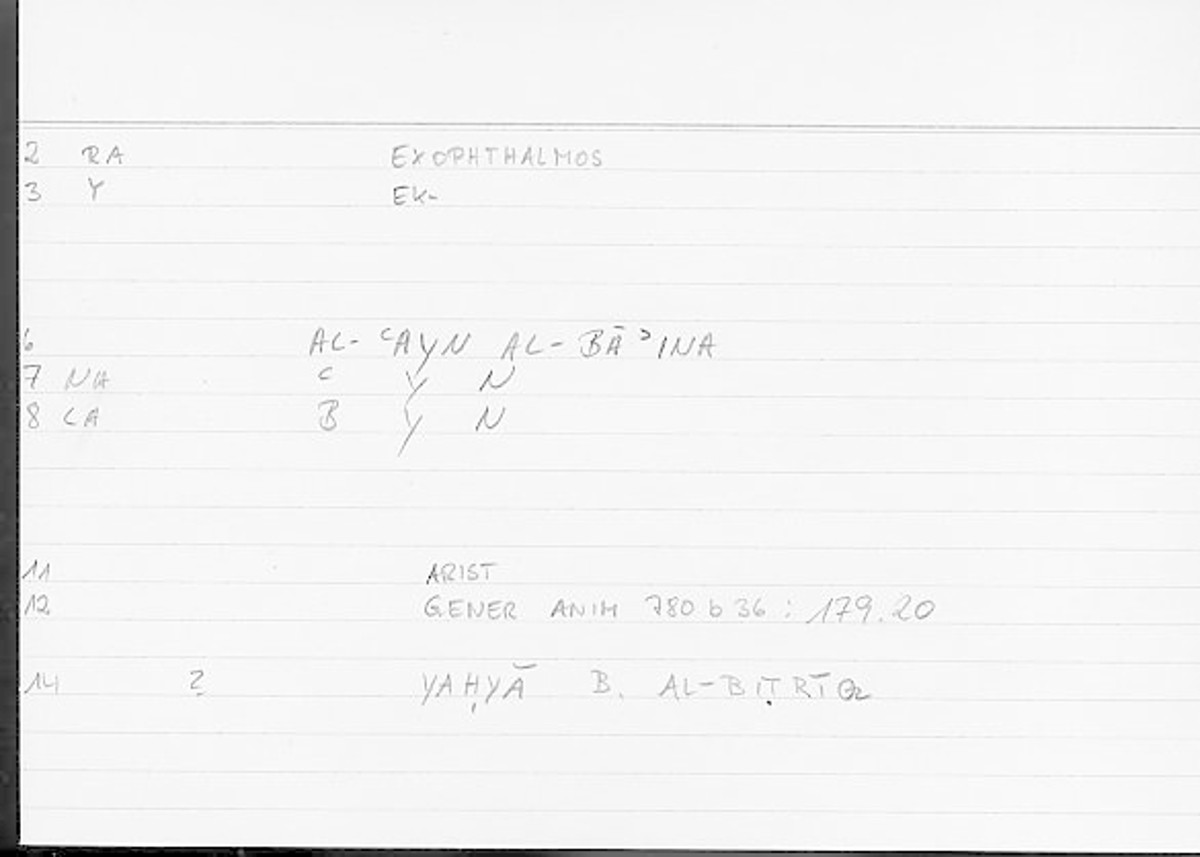 2 RA EXOPHTHALMOS
3 Y EK-
6 AL-ʿAYN AL-BĀʾINA
7 NA ʿ Y N
8 CA B Y N
11 ARIST
12 GENER ANIM 780 b 36 : 179.20
14 ? YAḤYĀ B. AL-BIṬRĪQ